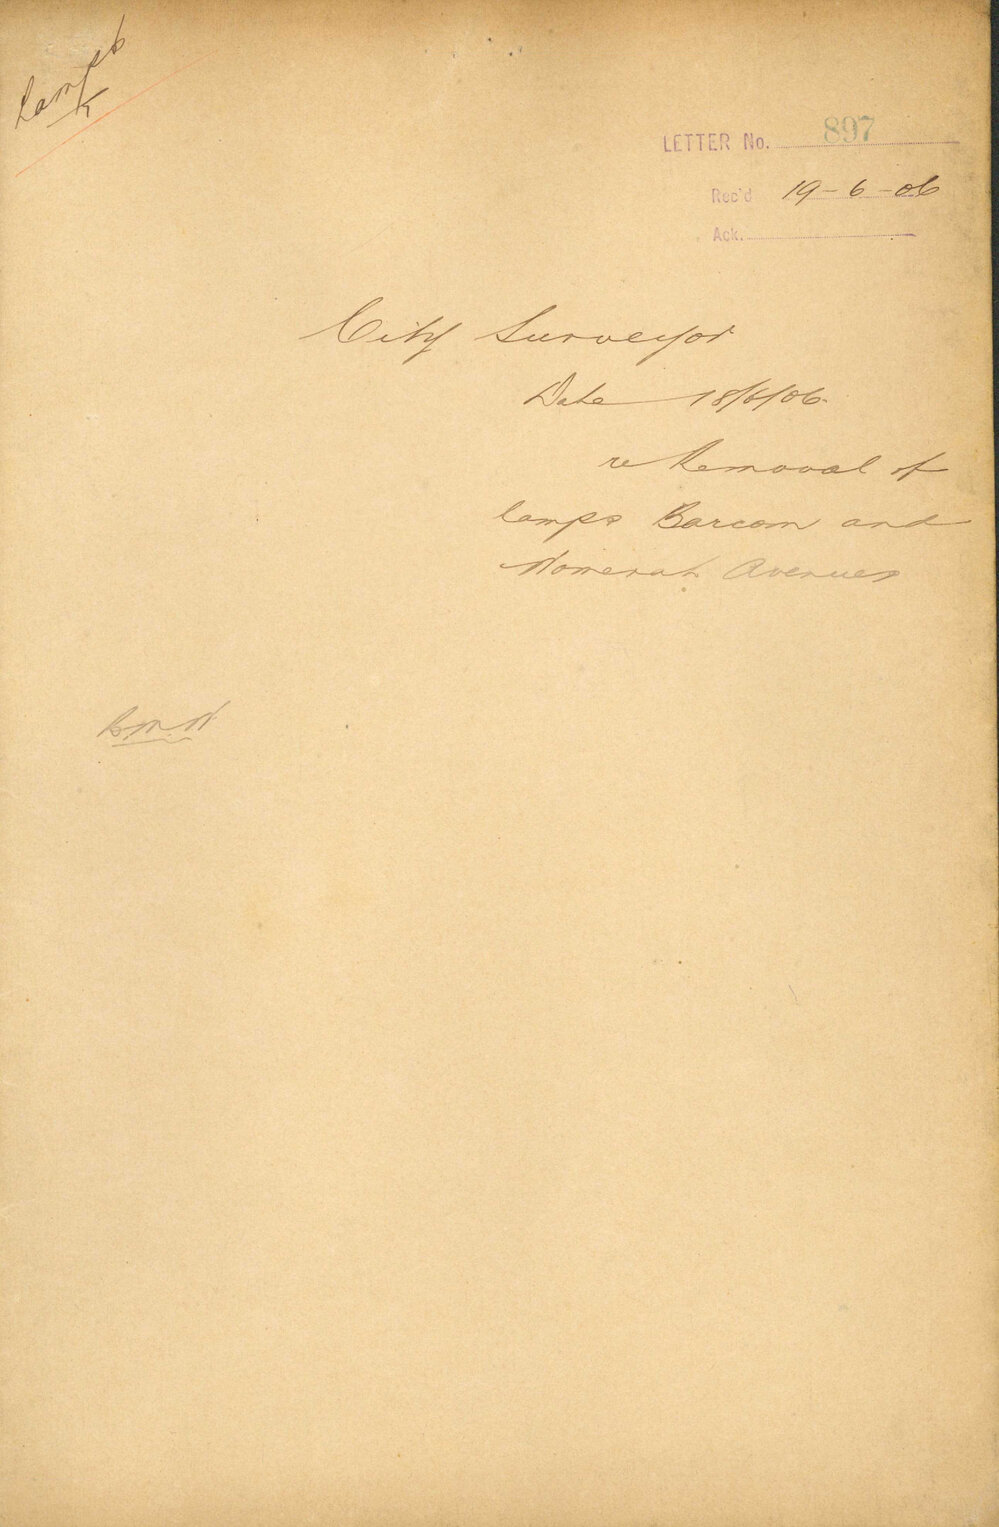 Lamps
LETTER No. 897
Rec'd 19-6-06
Ack.
City Surveyor
Date 18/6/06
re Removal of
lamps Barcom and
Womerah Avenues